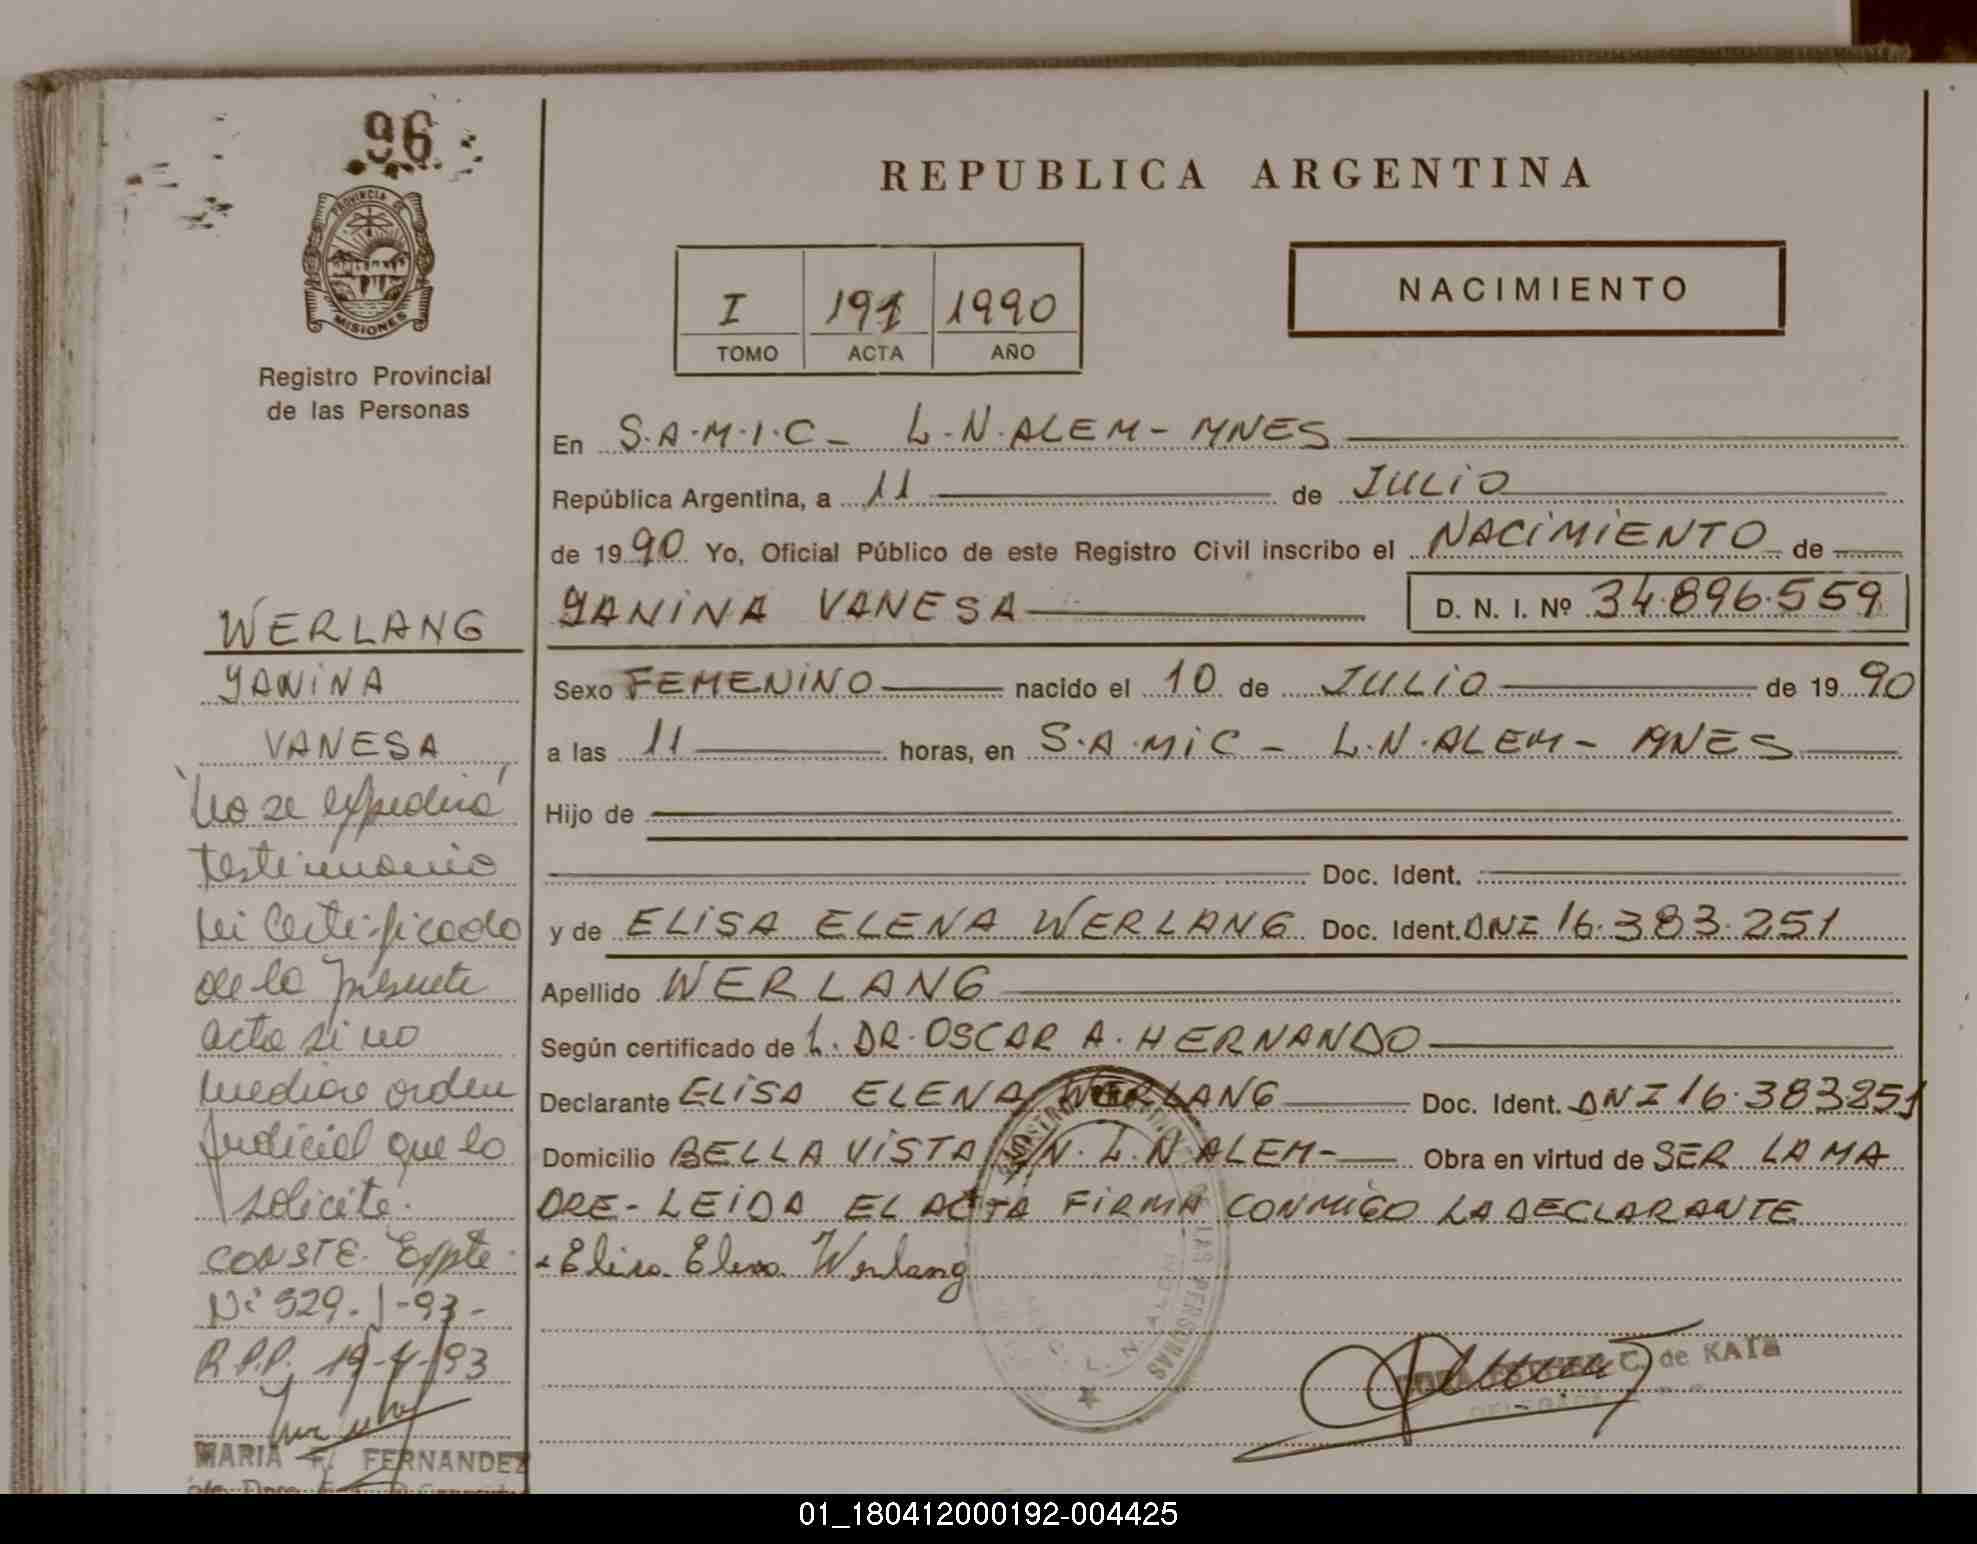 96
PROVINCIA DE
MISIONES
Registro Provincial
de las Personas
REPUBLICA ARGENTINA
I 191 1990
TOMO ACTA AÑO
NACIMIENTO
En S.A.M.I.C- L.N.ALEM- MNES
República Argentina, a 11 de JULIO
de 1990 Yo, Oficial Público de este Registro Civil inscribo el NACIMIENTO de
YANINA VANESA D. N. I. Nº 34.896.559
Sexo FEMENINO nacido el 10 de JULIO de 1990
a las 11 horas, en S.A.MIC- L.N.ALEM- MNES
Hijo de
Doc. Ident.
y de ELISA ELENA WERLANG Doc. Ident. DNI 16.383.251
Apellido WERLANG
Según certificado de L. DR. OSCAR A. HERNANDO
Declarante ELISA ELENA WERLANG Doc. Ident. DNI 16.383251
Domicilio BELLA VISTA S/N. L.N ALEM- Obra en virtud de SER LA MA
DRE- LEIDA EL ACTA FIRMA CONMIGO LA DECLARANTE
Elisa Elena Werlang
L. N. ALEM
DE LAS PERSONAS
C. de KATZ
DELEGADA
WERLANG
YANINA
VANESA
"No se expedirá
testimonio
ni certificado
de la presente
acta si no
mediare orden
judicial que lo
solicite.
CONSTE. Expte.
Nº 329-J-93-
R.P.P. 19-4-93
MARIA F. FERNANDEZ
01_180412000192-004425